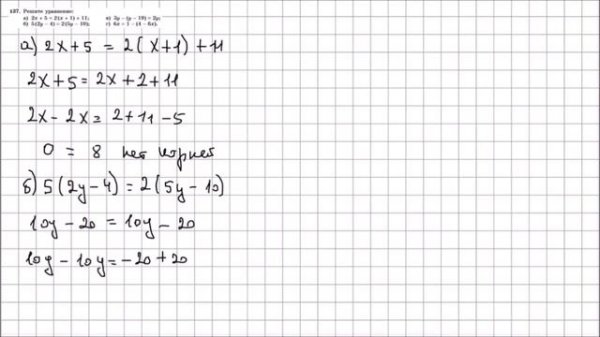 137. Решите уравнение:
а) 2x + 5 = 2(x + 1) + 11; в) 3y − (y − 19) = 2y;
б) 5(2y − 4) = 2(5y − 10); г) 6x = 1 − (4 − 6x).
а) 2x+5 = 2(x+1)+11
2x+5=2x+2+11
2x-2x=2+11-5
0 = 8 нет корней
б) 5(2y-4)=2(5y-10)
10y-20=10y-20
10y-10y=-20+20